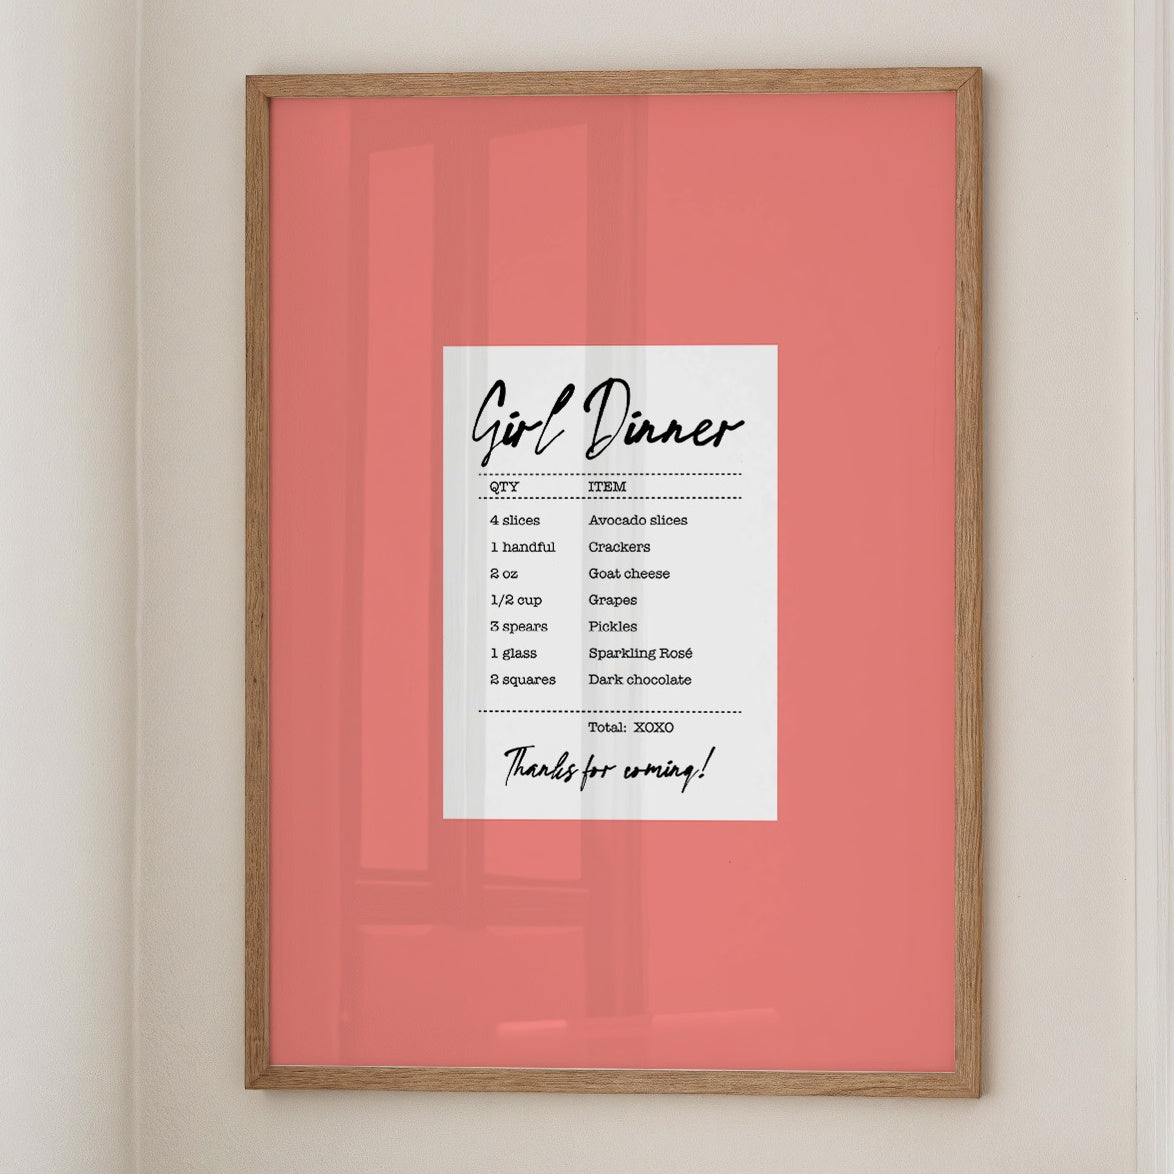 Girl Dinner
QTY ITEM
4 slices Avocado slices
1 handful Crackers
2 oz Goat cheese
1/2 cup Grapes
3 spears Pickles
1 glass Sparkling Rosé
2 squares Dark chocolate
Total: XOXO
Thanks for coming!